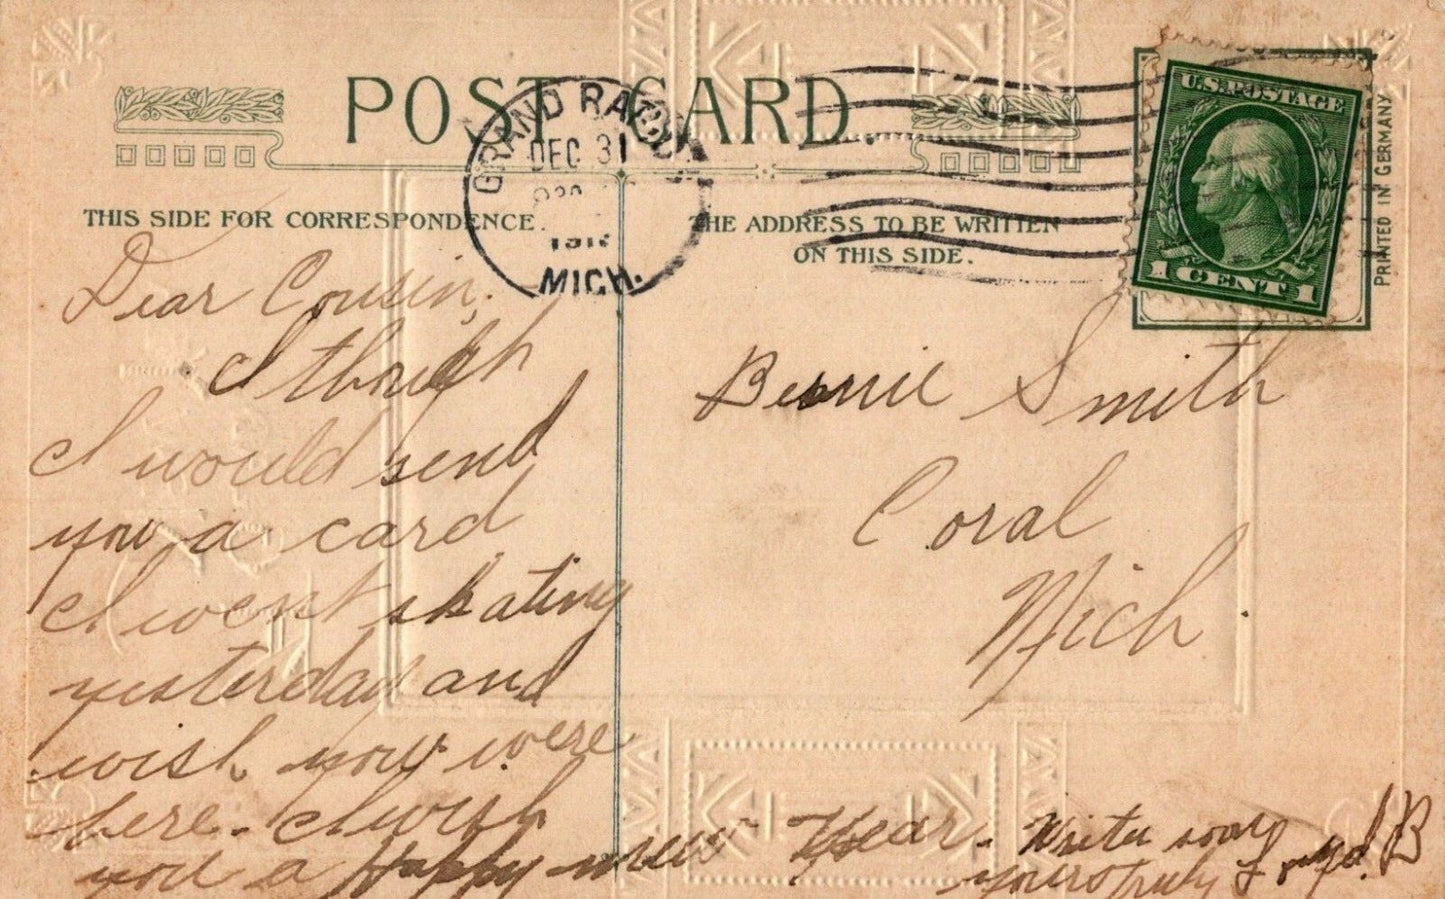 POST CARD
GRAND RAPIDS
DEC 31
MICH.
U.S. POSTAGE
1 CENT 1
PRINTED IN GERMANY
THIS SIDE FOR CORRESPONDENCE.
THE ADDRESS TO BE WRITTEN
ON THIS SIDE.
Dear Cousin,
I though
I would send
you a card
I went skating
yesterday and
wish you were
here. I wish
you a Happy new Year.
Write soon
yours truly
B
Bernie Smith
Coral
Mich.